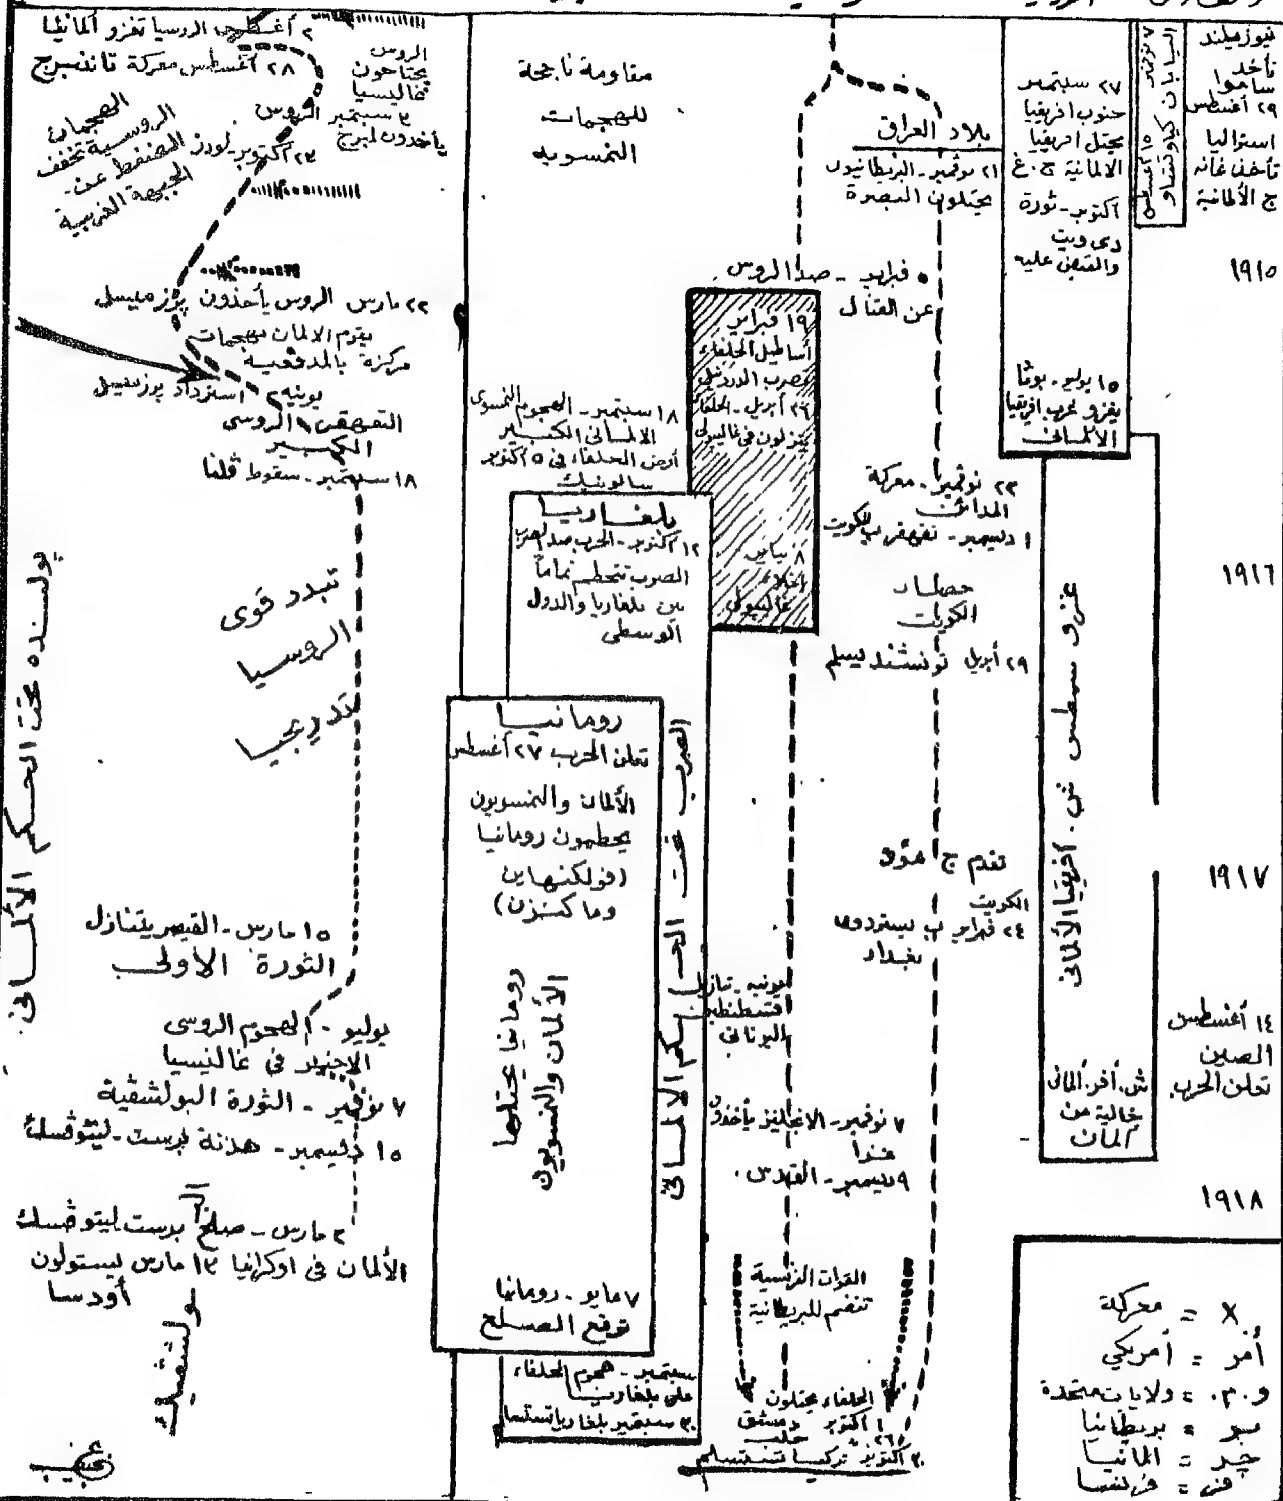 نيوزميلند
تأخذ
ساموا
٢٩ أغسطس
استراليا
تأخذ غانه
ج الألمانية
١٩١٥
١٩١٦
١٩١٧
١٤ أغسطس
الصين
تعلن الحرب.
١٩١٨
٧ نوفمبر
اليابان كياوتشاو
٢٧ سبتمبر
جنوب افريقيا
يحتل افريقيا
الالمانية ج. غ
أكتوبر - ثورة
دى ويت
والقبض عليه
١٥ يوليو - بوثا
يغزو غرب افريقيا
الألمانى
غزو سمطس ش. أفريقيا الألمانى
ش. أفر. ألمانى
خالية من
ألمان
بلاد العراق
٢١ نوفمبر - البريطانيون
يحتلون البصرة
فبراير - صد الروس
عن القتال
٢٣ نوفمبر - معركة
المدائن
١ دسيمبر - تقهقر ب للكويت
حصار
الكويت
٢٩ أبريل تونشند يسلم
تقدم ج مود
الكويت
٢٤ فبراير ب يستردون
بغداد
١٩ فبراير
أساطيل الحلفاء
تضرب الدردنيل
٢٦ أبريل - الحلفاء
ينزلون فى غاليبولى
٨ يناير
اخلاء
غاليبولى
يونيه - تنازل
قنسطنطين
اليونانى
٧ نوفمبر - الانجليز يأخذون
غزا
٩ دسيمبر - القدس.
القوات الفرنسية
تنضم للبريطانية
الحلفاء يحتلون
١ أكتوبر دمشق
٢٦ " حلب
٣٠ أكتوبر تركيا تستسلم
مقاومة ناجحة
للهجمات
النمسويه
١٨ سبتمبر - الهجوم النمسوى
الالمانى الكبير
أرض الحلفاء فى ٥ أكتوبر
سالونيك
بلغاريا
١٢ أكتوبر - الحرب ضد الصرب
الصرب تتحطم تماماً
بين بلغاريا والدول
الوسطى
الصرب تحت الحكم الالمانى
رومانيا
تعلن الحرب ٢٧ أغسطس
الألمان والنمسويون
يحطمون رومانيا
(فولكنهاين
وماكنزن)
رومانيا يحتلها
الألمان والنمسويون
٧ مايو - رومانيا
توقع الصلح
سبتمبر - هجوم الحلفاء
على بلغاريا
٣٠ سبتمبر بلغاريا تستسلم
٢ أغسطس الروسيا تغزو ألمانيا
٢٨ أغسطس معركة تاننبرج
الروس
يجتاحون
غاليسيا
٣ سبتمبر الروس
يأخذون لمبرج
٢٣ أكتوبر - لودز
الهجمات
الروسية تخفف
الضغط عن
الجبهة الغربية
٢٢ مارس الروس يأخذون برزميسل
يقوم الالمان بهجمات
مركزة بالمدفعية
يونيه ٢ استرداد برزميسل
التقهقر الروسى
الكبير
١٨ سبتمبر - سقوط ڤلنا
تبدد قوى
الروسيا
تدريجيا
بولنده تحت الحكم الألمانى.
١٥ مارس - القيصر يتنازل
الثورة الاولى
يوليو - الهجوم الروسى
الاخير فى غاليسيا
٧ نوفمبر - الثورة البولشفية
١٥ دليسمبر - هدنة برست - ليتوفسك
٣ مارس - صلح برست ليتوفسك
الألمان فى اوكرانيا ١٣ مارس يستولون
أودسا
بولشفيك
x = معركة
أمر = أمريكي
و.م. = ولايات متحدة
بر = بريطانيا
جر = المانيا
فر = فرنسا